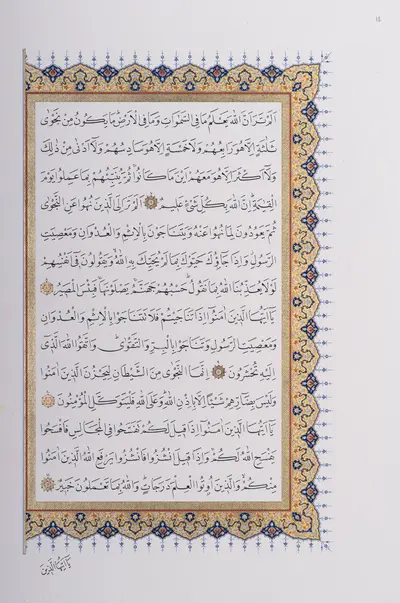 اَلَمْ تَرَ اَنَّ اللهَ يَعْلَمُ مَا فِى السَّمٰوَاتِ وَمَا فِى الْاَرْضِ مَا يَكُونُ مِنْ نَجْوٰى
ثَلٰثَةٍ اِلَّا هُوَ رَابِعُهُمْ وَلَا خَمْسَةٍ اِلَّا هُوَ سَادِسُهُمْ وَلَا اَدْنٰى مِنْ ذٰلِكَ
وَلَا اَكْثَرَ اِلَّا هُوَ مَعَهُمْ اَيْنَ مَا كَانُوا ثُمَّ يُنَبِّئُهُمْ بِمَا عَمِلُوا يَوْمَ
الْقِيٰمَةِ اِنَّ اللهَ بِكُلِّ شَىْءٍ عَلِيمٌ اَلَمْ تَرَ اِلَى الَّذِينَ نُهُوا عَنِ النَّجْوٰى
ثُمَّ يَعُودُونَ لِمَا نُهُوا عَنْهُ وَيَتَنَاجَوْنَ بِالْاِثْمِ وَالْعُدْوَانِ وَمَعْصِيَتِ
الرَّسُولِ وَاِذَا جَاؤُكَ حَيَّوْكَ بِمَا لَمْ يُحَيِّكَ بِهِ اللهُ وَيَقُولُونَ فِى اَنْفُسِهِمْ
لَوْلَا يُعَذِّبُنَا اللهُ بِمَا نَقُولُ حَسْبُهُمْ جَهَنَّمُ يَصْلَوْنَهَا فَبِئْسَ الْمَصِيرُ
يَا اَيُّهَا الَّذِينَ اٰمَنُوا اِذَا تَنَاجَيْتُمْ فَلَا تَتَنَاجَوْا بِالْاِثْمِ وَالْعُدْوَانِ
وَمَعْصِيَتِ الرَّسُولِ وَتَنَاجَوْا بِالْبِرِّ وَالتَّقْوٰى وَاتَّقُوا اللهَ الَّذِى
اِلَيْهِ تُحْشَرُونَ اِنَّمَا النَّجْوٰى مِنَ الشَّيْطَانِ لِيَحْزُنَ الَّذِينَ اٰمَنُوا
وَلَيْسَ بِضَارِّهِمْ شَيْئًا اِلَّا بِاِذْنِ اللهِ وَعَلَى اللهِ فَلْيَتَوَكَّلِ الْمُؤْمِنُونَ
يَا اَيُّهَا الَّذِينَ اٰمَنُوا اِذَا قِيلَ لَكُمْ تَفَسَّحُوا فِى الْمَجَالِسِ فَافْسَحُوا
يَفْسَحِ اللهُ لَكُمْ وَاِذَا قِيلَ انْشُزُوا فَانْشُزُوا يَرْفَعِ اللهُ الَّذِينَ اٰمَنُوا
مِنْكُمْ وَالَّذِينَ اُوتُوا الْعِلْمَ دَرَجَاتٍ وَاللهُ بِمَا تَعْمَلُونَ خَبِيرٌ
يَا اَيُّهَا الَّذِينَ